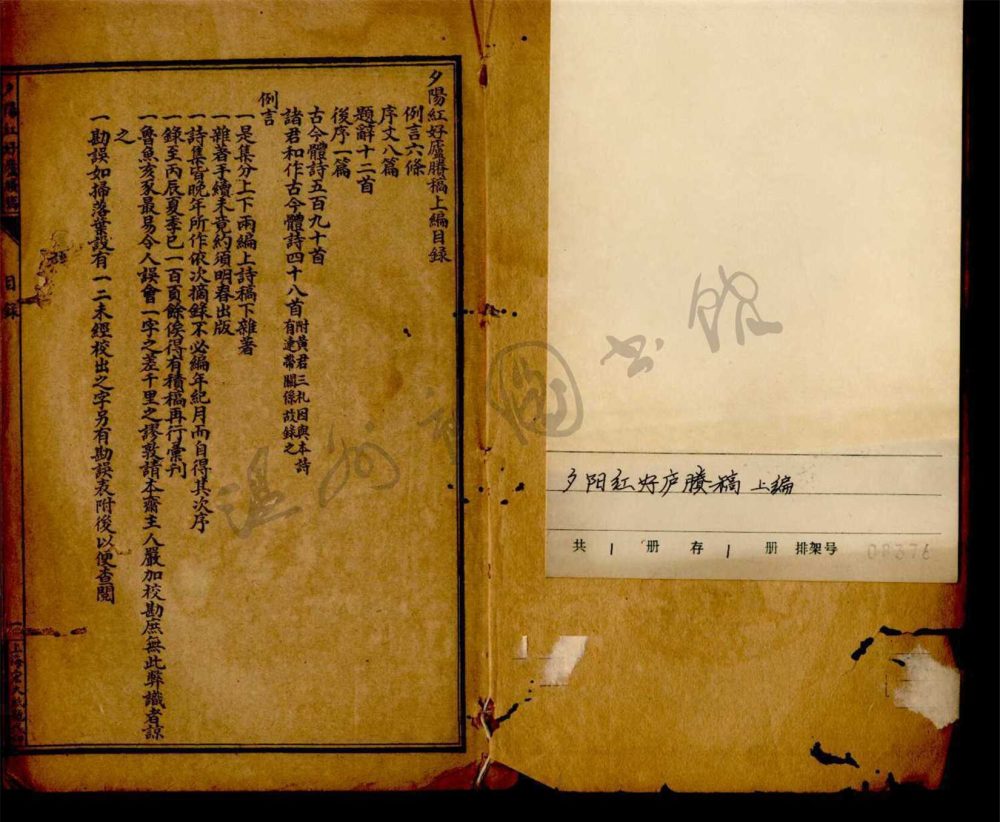 夕陽紅好廬賸稿上編目錄
例言六條
序文八篇
題辭十二首
後序一篇
古今體詩五百九十首
諸君和作古今體詩四十八首附黃君三礼因與本詩有連帶關係故錄之
例言
一是集分上下兩編上詩稿下雜著
一雜著手續未竟約須明春出版
一詩集皆晚年所作依次摘錄不必編年紀月而自得其次序
一錄至丙辰夏季已一百頁餘俟得有積稿再行彙刊
一魯魚亥豕最易令人誤會一字之差千里之謬敦請本齋主人嚴加校勘庶無此弊識者諒
之
一勘誤如掃落葉設有一二未經校出之字另有勘誤表附後以便查閱
夕陽紅好廬賸稿
目錄
一
夕阳红好庐賸稿 上编
共 1 册 存 1 册 排架号 08376
溫州市圖书館